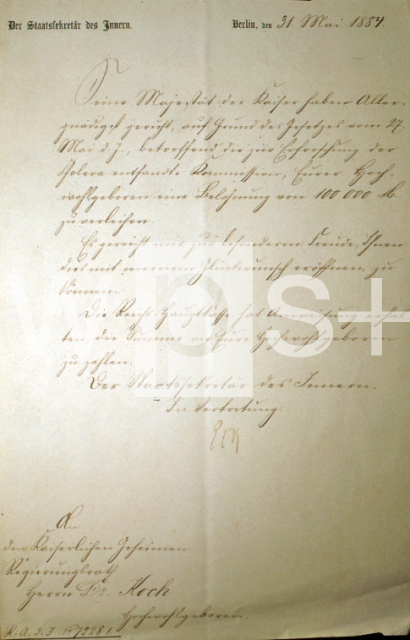 Der Staatssekretär des Innern.
Berlin, den 31 Mai 1884.
Seine Majestät der Kaiser haben Aller-
gnädigst geruht, auf Grund des Gesetzes vom 27.
Mai d. J., betreffend die zur Erforschung der
Cholera entsandte Kommission, Eurer Hoch-
wohlgeboren eine Belohnung von 100 000 M.
zu verleihen.
Es gereicht mir zur besonderen Freude, Ihnen
dies mit meinem Glückwunsch eröffnen zu
können.
Die Reichs-Hauptkasse hat Anweisung erhal-
ten, die Summe an Eure Hochwohlgeboren
zu zahlen.
Der Staatssekretär des Innern.
In Vertretung
An
den Kaiserlichen Geheimen
Regierungsrath
Herrn Dr. Koch
Hochwohlgeboren.
R. A. d. J.